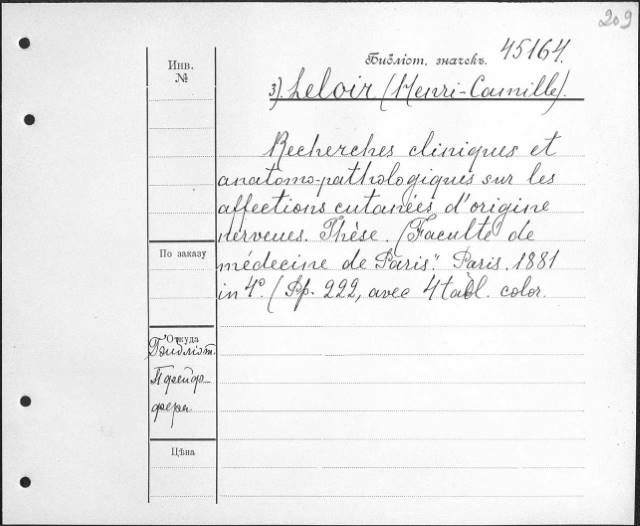 209
Инв.
№
Библіот. значекъ. 45164.
3). Leloir (Henri-Camille).
Recherches cliniques et
anatomo-pathologiques sur les
affections cutanées d'origine
nerveues. Thèse. (Faculté de
médecine de Paris." Paris. 1881
in 4°. (Pp. 222, avec 4 tabl. color.
По заказу
Откуда
Цѣна